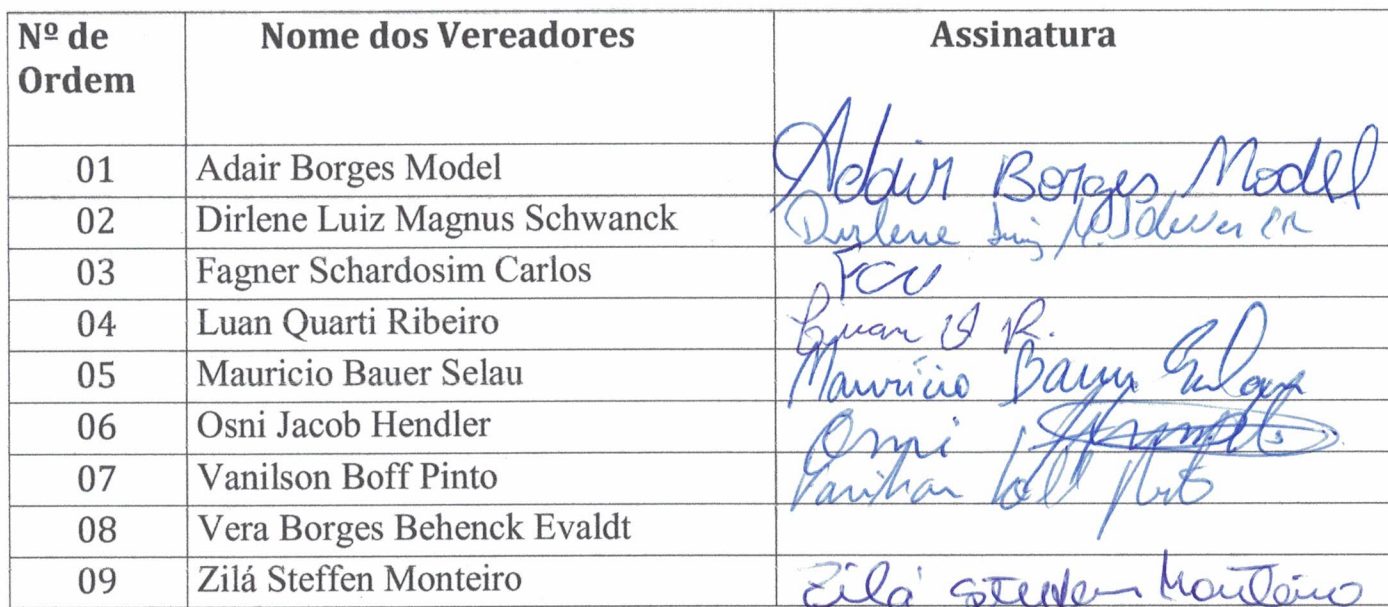 Nº de Ordem Nome dos Vereadores Assinatura
01 Adair Borges Model Adair Borges Model
02 Dirlene Luiz Magnus Schwanck Dirlene Luiz M.
03 Fagner Schardosim Carlos
04 Luan Quarti Ribeiro Luan Q R.
05 Mauricio Bauer Selau Maurício Bauer Selau
06 Osni Jacob Hendler Osni
07 Vanilson Boff Pinto Vanilson Boff Pinto
08 Vera Borges Behenck Evaldt
09 Zilá Steffen Monteiro Zilá Steffen Monteiro